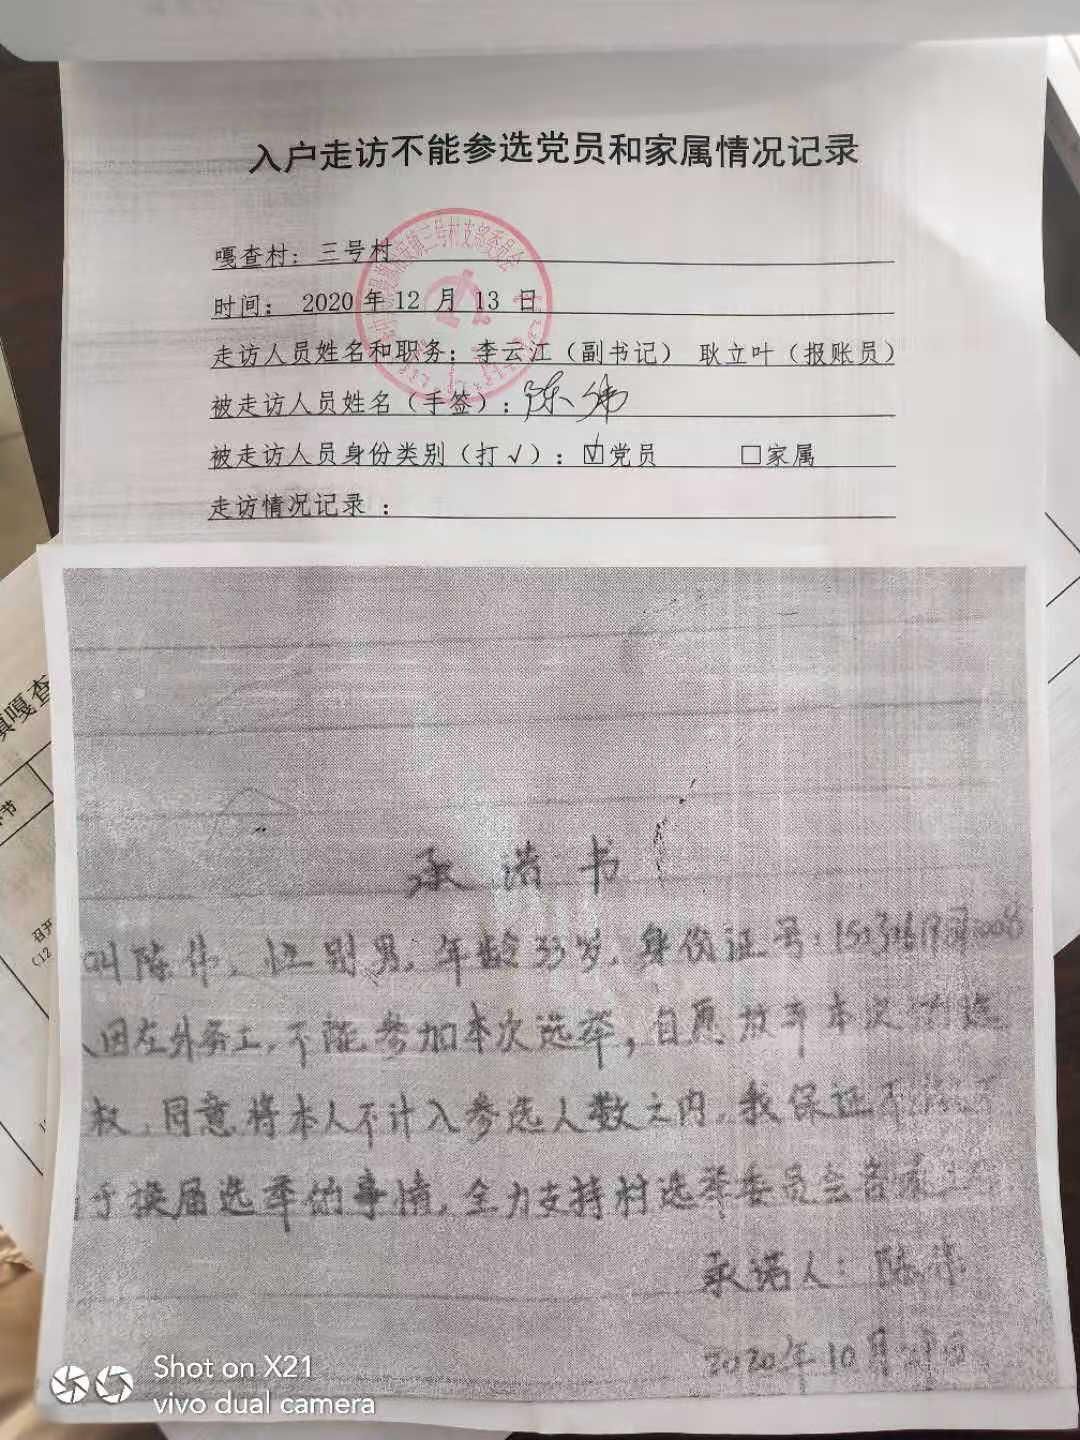 入户走访不能参选党员和家属情况记录
嘎查村：三号村
时间： 2020 年 12 月 13 日
走访人员姓名和职务：李云江（副书记） 耿立叶（报账员）
被走访人员姓名（手签）：陈伟
被走访人员身份类别（打√）：☑党员 □家属
走访情况记录 ：
镇三号村支部委员会
镇嘎查
节
召开
（12
承诺书
叫陈伟，性别男，年龄33岁，身份证号：
因在外务工，不能参加本次选举，自愿放弃本次
权，同意将本人不计入参选人数之内，我保证不
于换届选举的事情，全力支持村选举委员会各项
承诺人：陈伟
2020年10月 日
Shot on X21
vivo dual camera